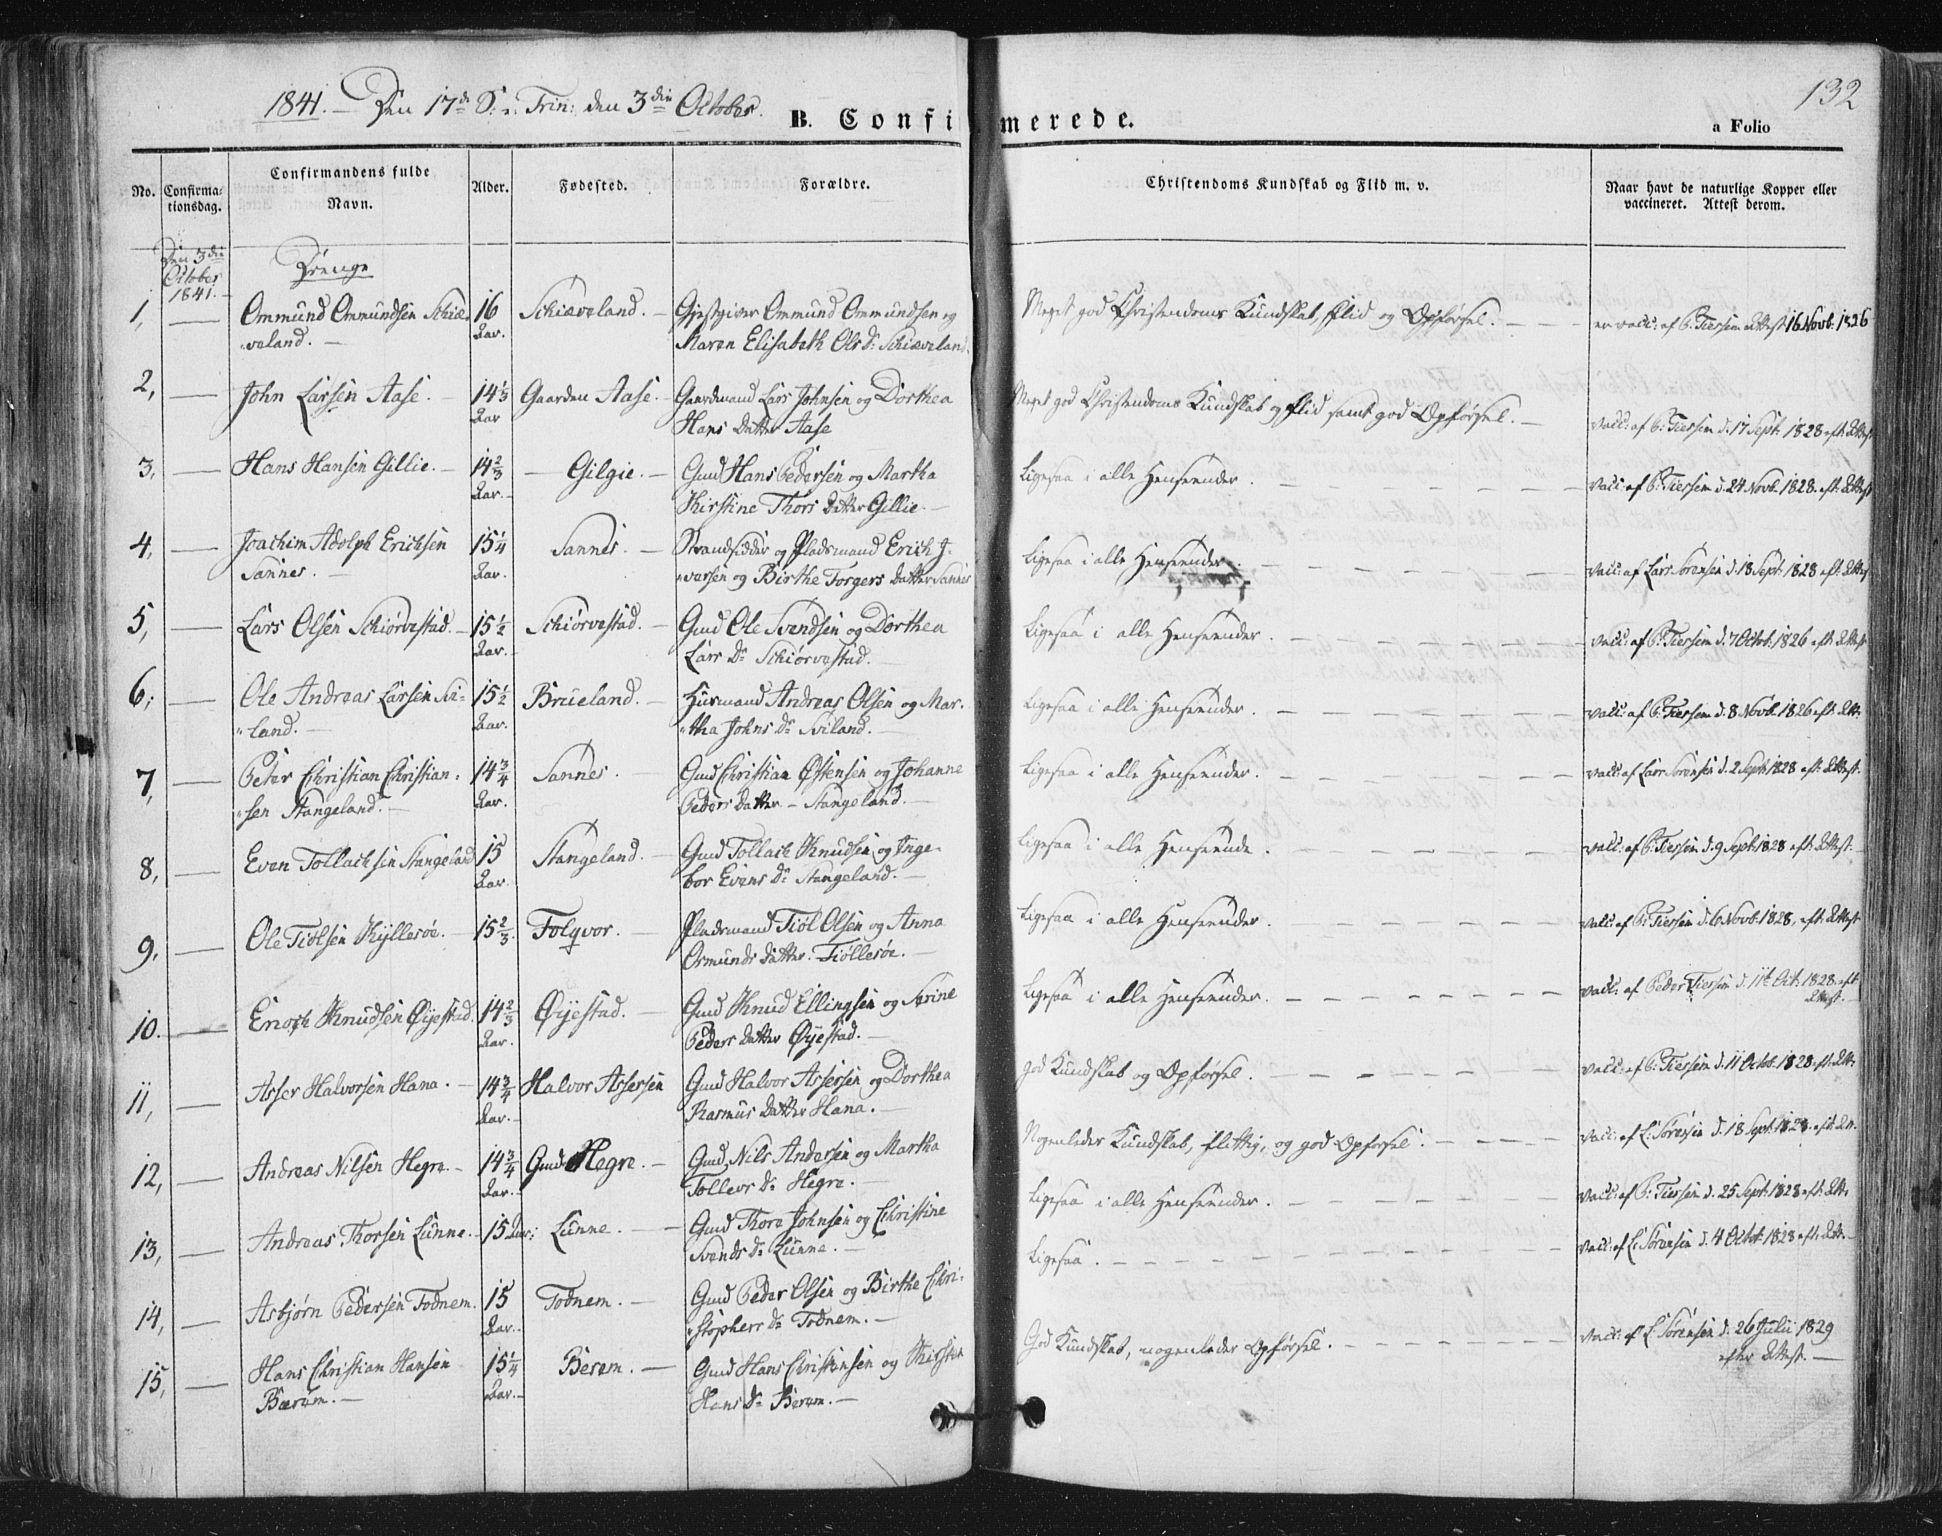 1841. – Den 17de S: e: Trin: den 3die October.
B. Confirmerede.
132
a Folio
No.
Confirma-
tionsdag.
Confirmandens fulde
Navn.
Alder.
Fødested.
Forældre.
Christendoms Kundskab og Flid m. v.
Naar havt de naturlige Kopper eller
vaccineret. Attest derom.
Den 3die
October
1841.
Drenge
1, — Ommund Ommundsen Schiæ- 16 Schiæveland. – Gjestgiver Ommund Ommundsen og Meget god Christendoms Kundskab, Flid og Opførsel. – – er vacc: af P: Tiersen Attest 16 Novb. 1826
veland. – Aar. Maren Elisabeth Ols Dr Schiæveland
2, — John Larsen Aase. – 14 1/3 Gaarden Aase. – Gaardmand Lars Johnsen og Dorthea Meget god Christendoms Kundskab og Flid samt god Opførsel. –
Aar Hans Datter Aase vacc: af P: Tiersen d. 17 Sept. 1828 eft. Attest
3, — Hans Hansen Gillie. – 14 2/3 – Gilgie. – Gmd Hans Pedersen og Martha Ligesaa i alle Henseender. – vacc: af P: Tiersen d. 24 Novb. 1828. eft. Attest
Aar. – Kirstine Thors Datter Gillie. –
4, — Joachim Adolph Erichsen 15 1/4 Sannes. – Strandsidder og Pladsmand Erich J- Ligesaa i alle Henseender. – vacc: af Lars Sørensen d. 18 Sept. 1828 eft. Attest
Sannes. – Aar. versen og Birthe Torgers Datter Sannes
5, — Lars Olsen Schiørvestad. – 15 1/2 Schiørvestad. – Gmd Ole Svendsen og Dorthea Ligesaa i alle Henseender. – vacc: af P: Tiersen d. 7 Octob. 1826 eft. Attest
Aar. – Lars Dr Schiørvestad. –
6, — Ole Andreas Larsen Svi- 15 1/2 Brueland. – Husmand Andreas Olsen og Mar- Ligesaa i alle Henseender. – vacc: af P: Tiersen d. 8 Novb. 1826 eft. Att.
land. – Aar. tha Johns Dr Sviland. –
7, — Peter Christian Christian- 14 3/4 Sannes. Gmd Christian Østensen og Johanne Ligesaa i alle Henseender. – vacc: af Lars Sørensen d. 2 Sept. 1828 eft. Attest.
sen Stangeland. – Aar. Peders Datter – Stangeland. –
8, — Even Tollachsen Stangeland 15 Stangeland. – Gmd Tollach Knudsen og Inge- Ligesaa i alle Henseende. – vacc: af P: Tiersen d. 9 Sept. 1828 eft. Attest.
Aar. bor Evens Dr Stangeland. –
9, — Ole Tiølsen Kyllesøe. – 15 2/3. Folqvor. – Pladsmand Tiøl Olsen og Anna Ligesaa i alle Henseender. vacc: af P: Tiersen d. 6 Novb. 1828, eft. Attest
Osmunds Datter. Tiøllesøe. –
10. — Enoch Knudsen Øÿestad. 14 2/3 Øÿestad. – Gmd Knud Ellingsen og Serine Ligesaa i alle Henseender. – vacc: af Peder Tiersen d. 11te Oct. 1828. eft
Aar. Peders Datter Øÿestad. – Attest. –
11, — Asser Halvorsen Hana. – 14 3/4 Halvor Assersen Gmd Halvor Assersen og Dorthea god Kundskab og Opførsel. – vacc: af P: Tiersen d. 11 Octob. 1828. eft. Att.
Aar. – Rasmus Datter Hana. –
12, — Andreas Nilsen Hegre. – 14 3/4 Gmd Hegre. – Gmd. Nils Andersen og Martha Nogenledes Kundskab, flittig, og god Opførsel. – vacc: af L: Sørensen d. 18 Sept. 1828. eft. Att.
Aar. – Tollevs Dr Hegre. –
13, — Andreas Thorsen Lunne. – 15 Aar. Lunne. – Gmd Thore Johnsen og Christine Ligesaa i alle Henseender. – vacc: af P: Tiersen d. 25 Sept. 1828 eft. Att.
Svends Dr Lunne. –
14, — Asbjørn Pedersen Todnem. 15 Todnem. – Gmd Peder Olsen og Birthe Chri- Ligesaa. – vacc: af L: Sørensen d. 4 Octob. 1828 eft. Att. –
Aar. – stophers Dr Todnem. –
15, — Hans Christian Hansen 15 1/4 Berem. – Gmd Hans Christensen og Kirsten God Kundskab, nogenledes Opførsel. – vacc: af L. Sørensen d. 26 Julii 1829
Bærum. – Aar. – Hans Dr Berem. – efter Attest. –